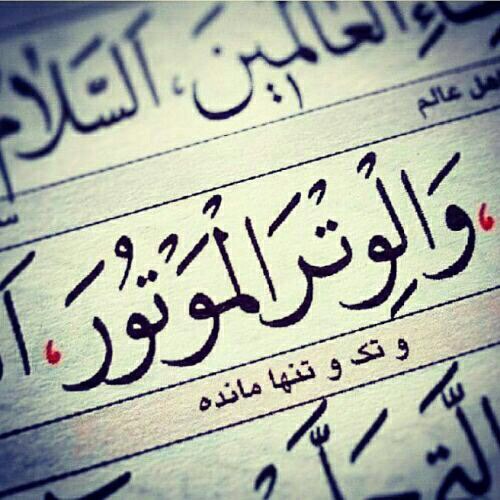 ساءِ العالَمینَ، اَلسَّلامُ
هل عالم
، وَالْوِتْرَ الْمَوْتُورَ ، اَ
و تک و تنها مانده